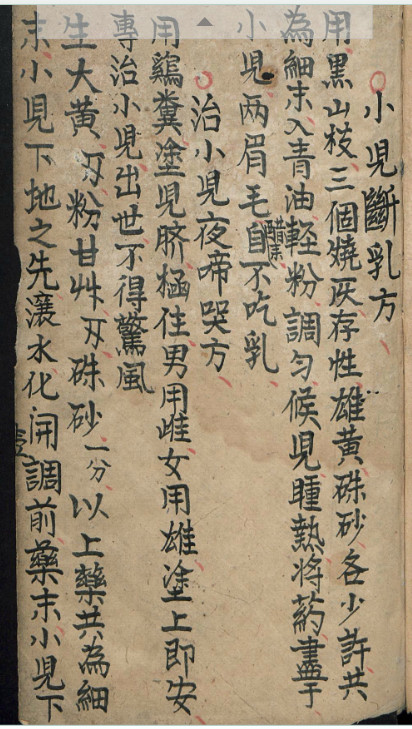 小児斷乳方
用黒山枝三個燒灰存性雄黄硃砂各少許共
為細末入青油軽粉調匀候児睡熟将药畫于
小児两眉毛自不吃乳
治小児夜啼哭方
用鷄糞塗児脐極住男用雌女用雄塗上即安
專治小児出世不得驚風
生大黄 粉甘艸 硃砂一分以上藥共為細
末小児下地之先滚水化開調前藥末小児下